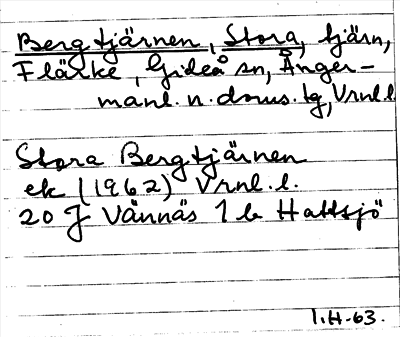 Bergtjärnen, Stora, tjärn,
Flärke, Gideå sn, Ånger-
manl. n. doms. tg, Vrnl.l.
Stora Bergtjärnen
ek (1962) Vrnl. l.
20 J Vännäs 1 b Hattsjö
I.H-63.